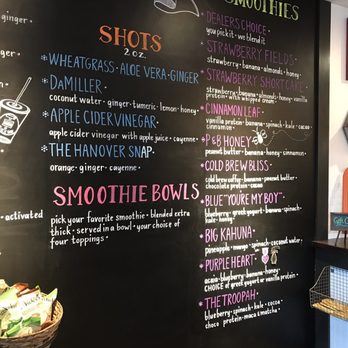 SMOOTHIES
DEALERS CHOICE
you pick it - we blend it
STRAWBERRY FIELDS
strawberry • banana • almonds • honey
STRAWBERRY SHORTCAKE
strawberry • banana • almonds • honey • vanilla
protein • with whipped cream
CINNAMON LEAF
vanilla protein • banana • spinach • kale • cacao
cinnamon
P&B HONEY
peanut butter • banana • honey • cinnamon
COLD BREW BLISS
cold brew coffee • banana • peanut butter
chocolate protein • cacao
BLUE "YOU'RE MY BOY"
blueberry • greek yogurt • banana • spinach
honey
BIG KAHUNA
pineapple • mango • spinach • coconut water
PURPLE HEART
acai • blueberry • banana • honey
choice of greek yogurt or vanilla protein
THE TROOPAH
blueberry • spinach • kale • cocoa
choco protein • maca & matcha
SHOTS
2 OZ.
*WHEATGRASS • ALOE VERA • GINGER
*DAMILLER
coconut water • ginger • tumeric • lemon • honey
*APPLE CIDER VINEGAR
apple cider vinegar with apple juice • cayenne
*THE HANOVER SNAP
orange • ginger • cayenne
SMOOTHIE BOWLS
pick your favorite smoothie • blended extra
thick • served in a bowl • your choice of
four toppings
ginger
activated